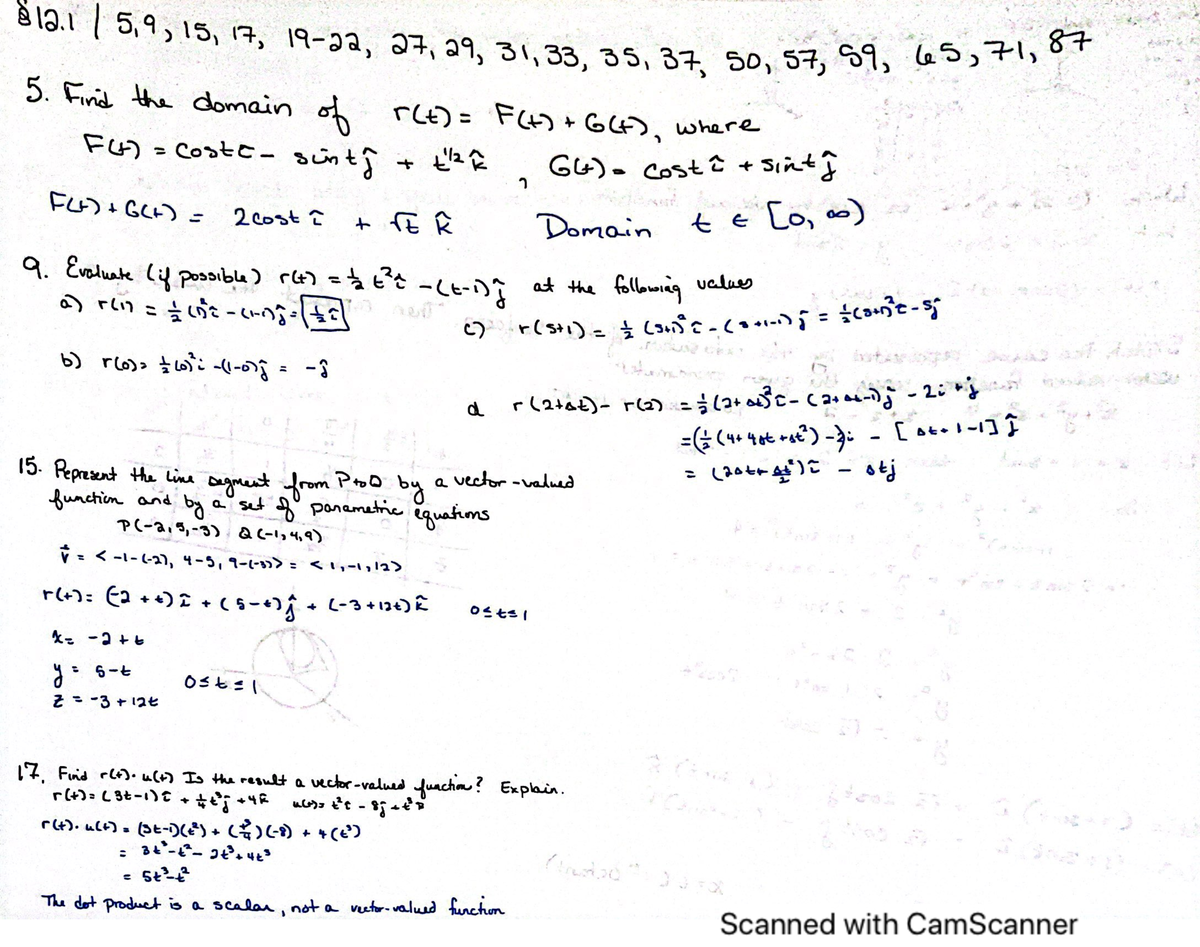 §12.1 | 5, 9, 15, 17, 19-22, 27, 29, 31, 33, 35, 37, 50, 57, 59, 65, 71, 87
5. Find the domain of r(t) = F(t) + G(t), where
F(t) = cost î - sint ĵ + t^1/2 k̂ , G(t) = cost î + sint ĵ
F(t) + G(t) = 2cost î + √t k̂ Domain t ∈ [0, ∞)
9. Evaluate (if possible) r(t) = ½ t² î - (t-1) ĵ at the following values
a) r(1) = ½ (1)² î - (1-1) ĵ = ½ î
c) r(s+1) = ½ (s+1)² î - (s+1-1) ĵ = ½(s+1)² î - sĵ
b) r(0) = ½ (0)² i - (1-0) ĵ = -ĵ
d r(2+Δt) - r(2) = ½ (2+Δt)² î - (2+Δt-1) ĵ - 2i + j
= (½ (4+4Δt+Δt²) - 2)i - [Δt+1-1] ĵ
= (2Δt+ Δt²/2) î - Δtj
15. Represent the line segment from P to Q by a vector-valued
function and by a set of parametric equations
P(-2, 5, -3) Q(-1, 4, 9)
v = < -1-(-2), 4-5, 9-(-3)> = < 1, -1, 12>
r(t) = (-2 + t) î + (5-t) ĵ + (-3+12t) k̂ 0≤t≤1
x = -2+t
y = 5-t 0≤t≤1
z = -3+12t
17. Find r(t)·u(t) Is the result a vector-valued function? Explain.
r(t) = (3t-1) î + ¼t³ ĵ + 4k̂ u(t) = t² î - 8ĵ + t³ k̂
r(t)·u(t) = (3t-1)(t²) + (t³/4)(-8) + 4(t³)
= 3t³-t²-2t³+4t³
= 5t³-t²
The dot product is a scalar, not a vector-valued function
Scanned with CamScanner